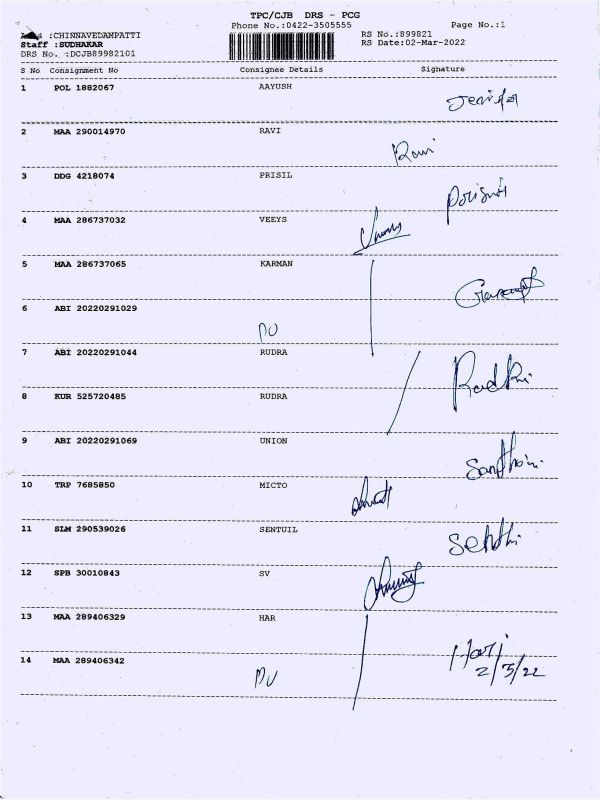 TPC/CJB DRS - PCG
Phone No.:0422-3505555 Page No.:1
:CHINNAVEDAMPATTI RS No.:899821
Staff :SUDHAKAR RS Date:02-Mar-2022
DRS No. :DCJB89982101
S No Consignment No Consignee Details Signature
1 POL 1882067 AAYUSH
2 MAA 290014970 RAVI Ravi
3 DDG 4218074 PRISIL
4 MAA 286737032 VEEYS
5 MAA 286737065 KARMAN
6 ABI 20220291029
7 ABI 20220291044 RUDRA
8 KUR 525720485 RUDRA
9 ABI 20220291069 UNION
10 TRP 7685850 MICTO
11 SLM 290539026 SENTUIL
12 SPB 30010843 SV
13 MAA 289406329 HAR
14 MAA 289406342 Hari
2/3/22